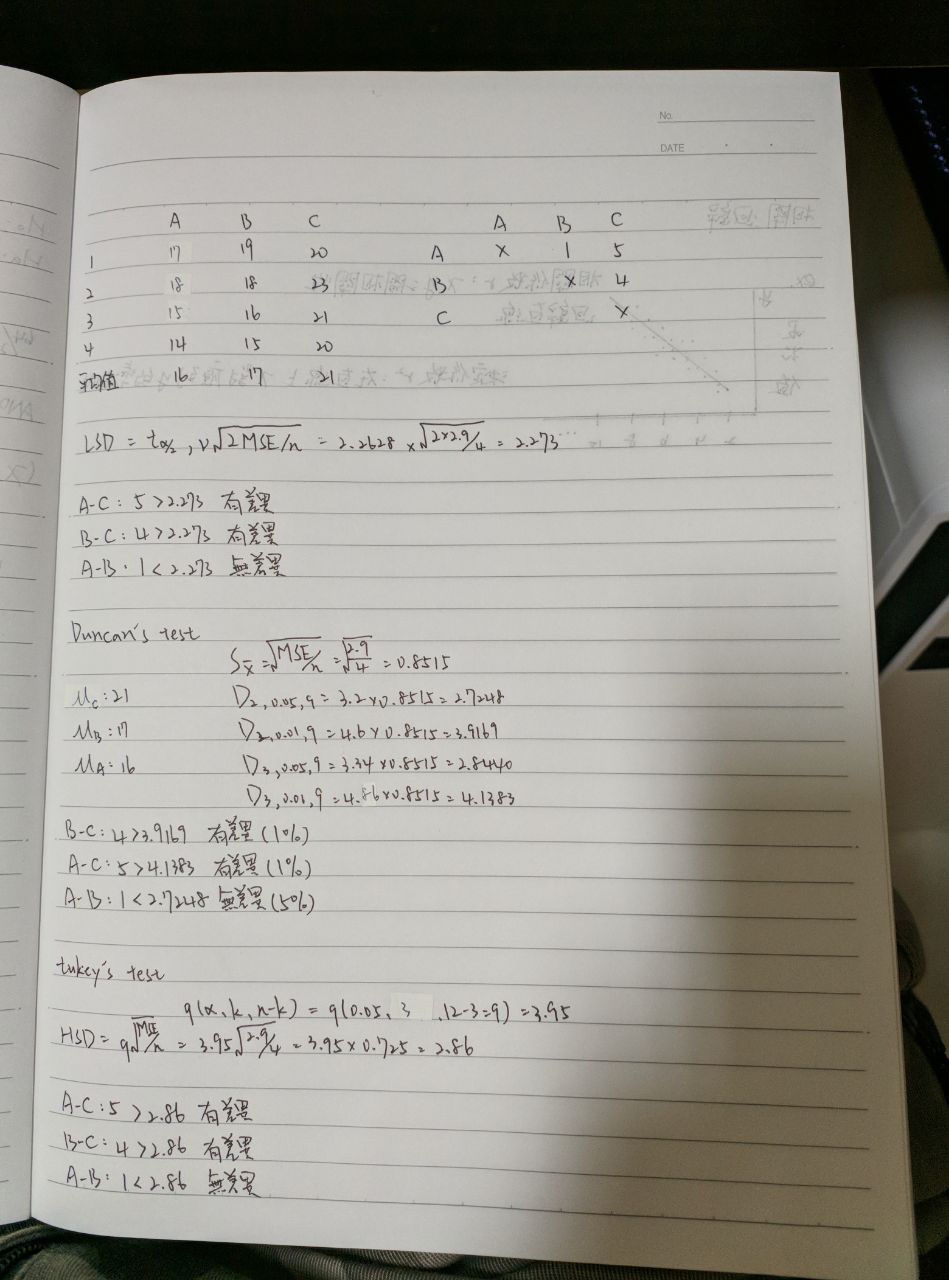 No.
DATE
A B C A B C
1 17 19 20 A × 1 5
2 18 18 23 B × 4
3 15 16 21 C ×
4 14 15 20
平均值 16 17 21
LSD = tα/2, ν√2MSE/n = 2.2628 × √2×2.9/4 = 2.273
A-C: 5 > 2.273 有差異
B-C: 4 > 2.273 有差異
A-B: 1 < 2.273 無差異
Duncan's test
Sx̄ = √MSE/n = √2.9/4 = 0.8515
Mc: 21 D2, 0.05, 9 = 3.2 × 0.8515 = 2.7248
MB: 17 D2, 0.01, 9 = 4.6 × 0.8515 = 3.9169
MA: 16 D3, 0.05, 9 = 3.34 × 0.8515 = 2.8440
D3, 0.01, 9 = 4.86 × 0.8515 = 4.1383
B-C: 4 > 3.9169 有差異 (1%)
A-C: 5 > 4.1383 有差異 (1%)
A-B: 1 < 2.7248 無差異 (5%)
tukey's test
q(α, k, n-k) = q(0.05, 3, 12-3=9) = 3.95
HSD = q√MSE/n = 3.95√2.9/4 = 3.95 × 0.725 = 2.86
A-C: 5 > 2.86 有差異
B-C: 4 > 2.86 有差異
A-B: 1 < 2.86 無差異